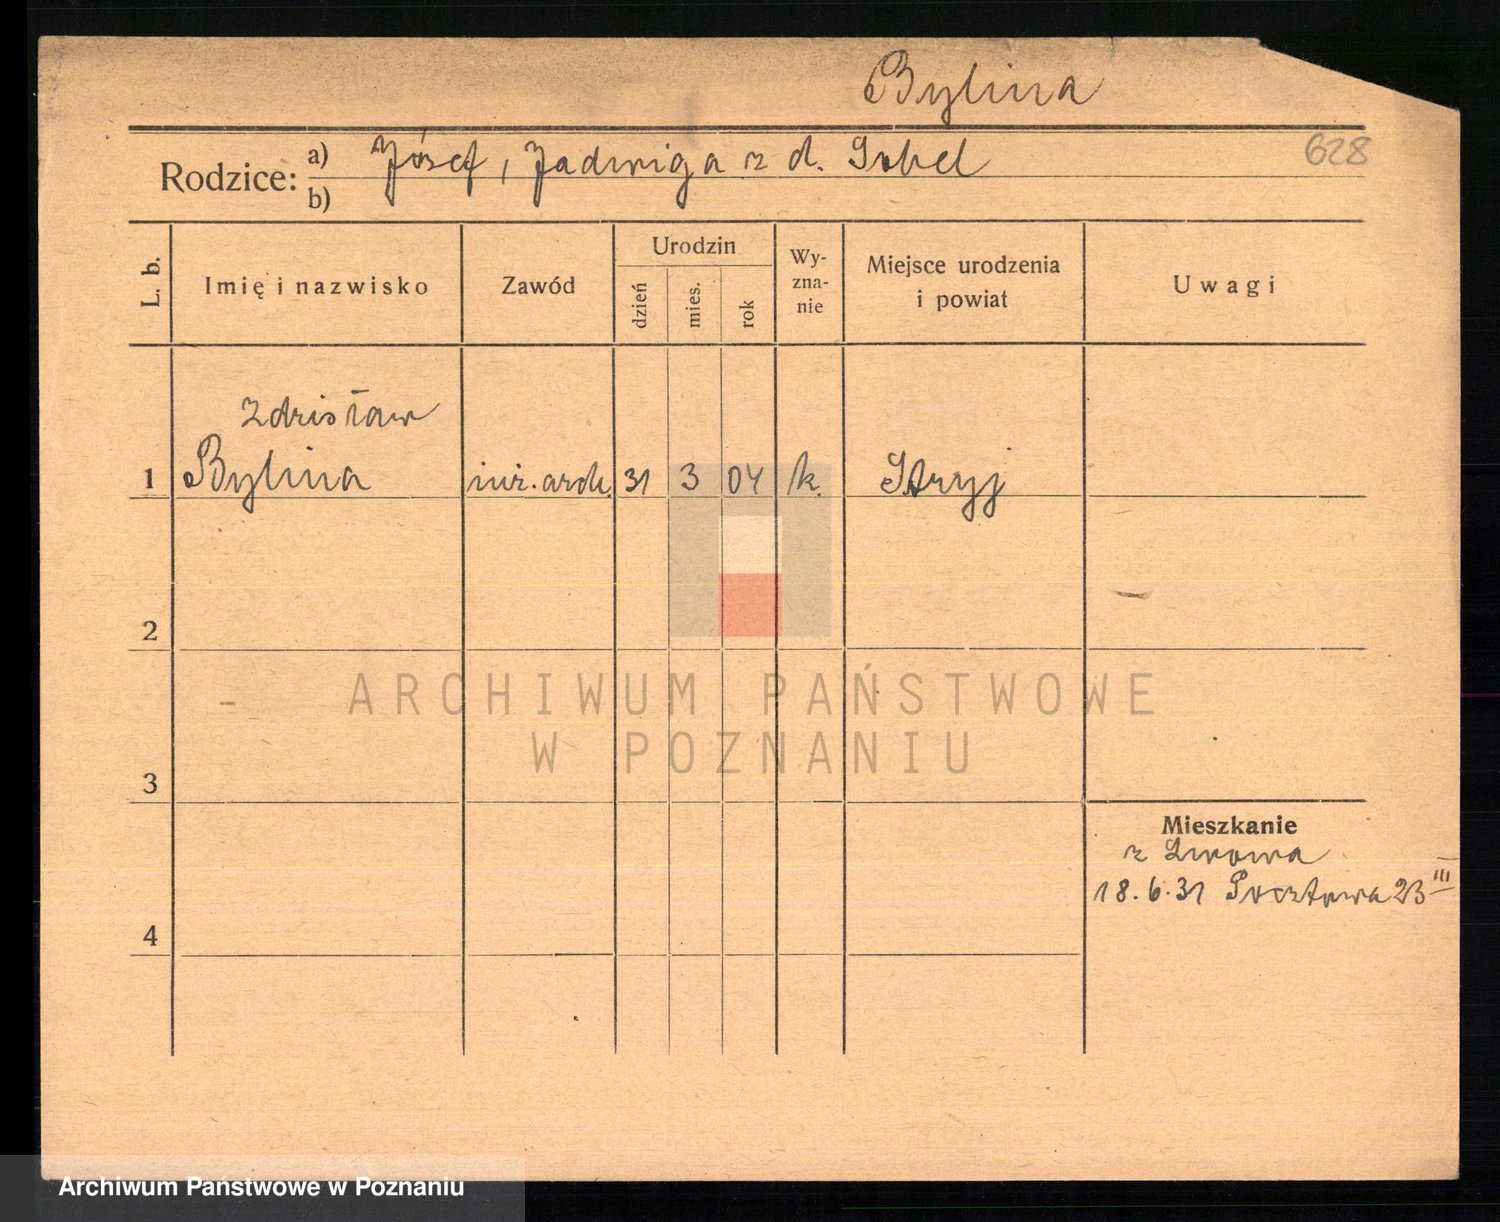 Bylina
628
Rodzice: a) Józef, Jadwiga z d.
b)
L. b.
Imię i nazwisko
Zawód
Urodzin
dzień
mies.
rok
Wy-
zna-
nie
Miejsce urodzenia
i powiat
Uwagi
Zdzisław
1 Bylina inż. arch. 31 3 04 k. Stryj
2
3
4
Mieszkanie
z Lwowa
18.6.31 Pocztowa 23 III
ARCHIWUM PAŃSTWOWE
W POZNANIU
Archiwum Państwowe w Poznaniu